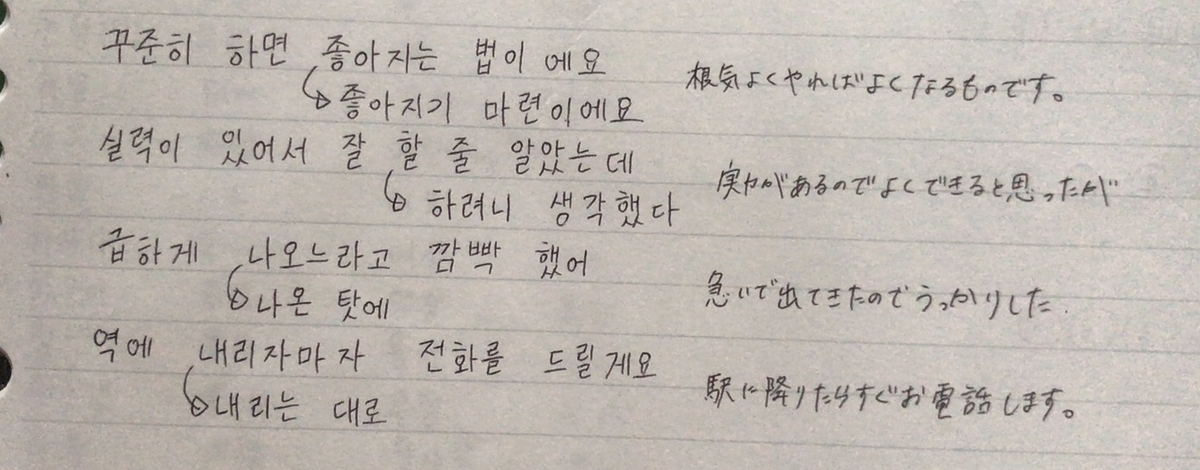 꾸준히 하면 좋아지는 법이에요
根気よくやればよくなるものです。
좋아지기 마련이에요
실력이 있어서 잘 할 줄 알았는데
実力があるのでよくできると思ったが
하려니 생각했다
급하게 나오느라고 깜빡 했어
急いで出てきたのでうっかりした.
나온 탓에
역에 내리자마자 전화를 드릴게요
駅に降りたらすぐお電話します。
내리는 대로